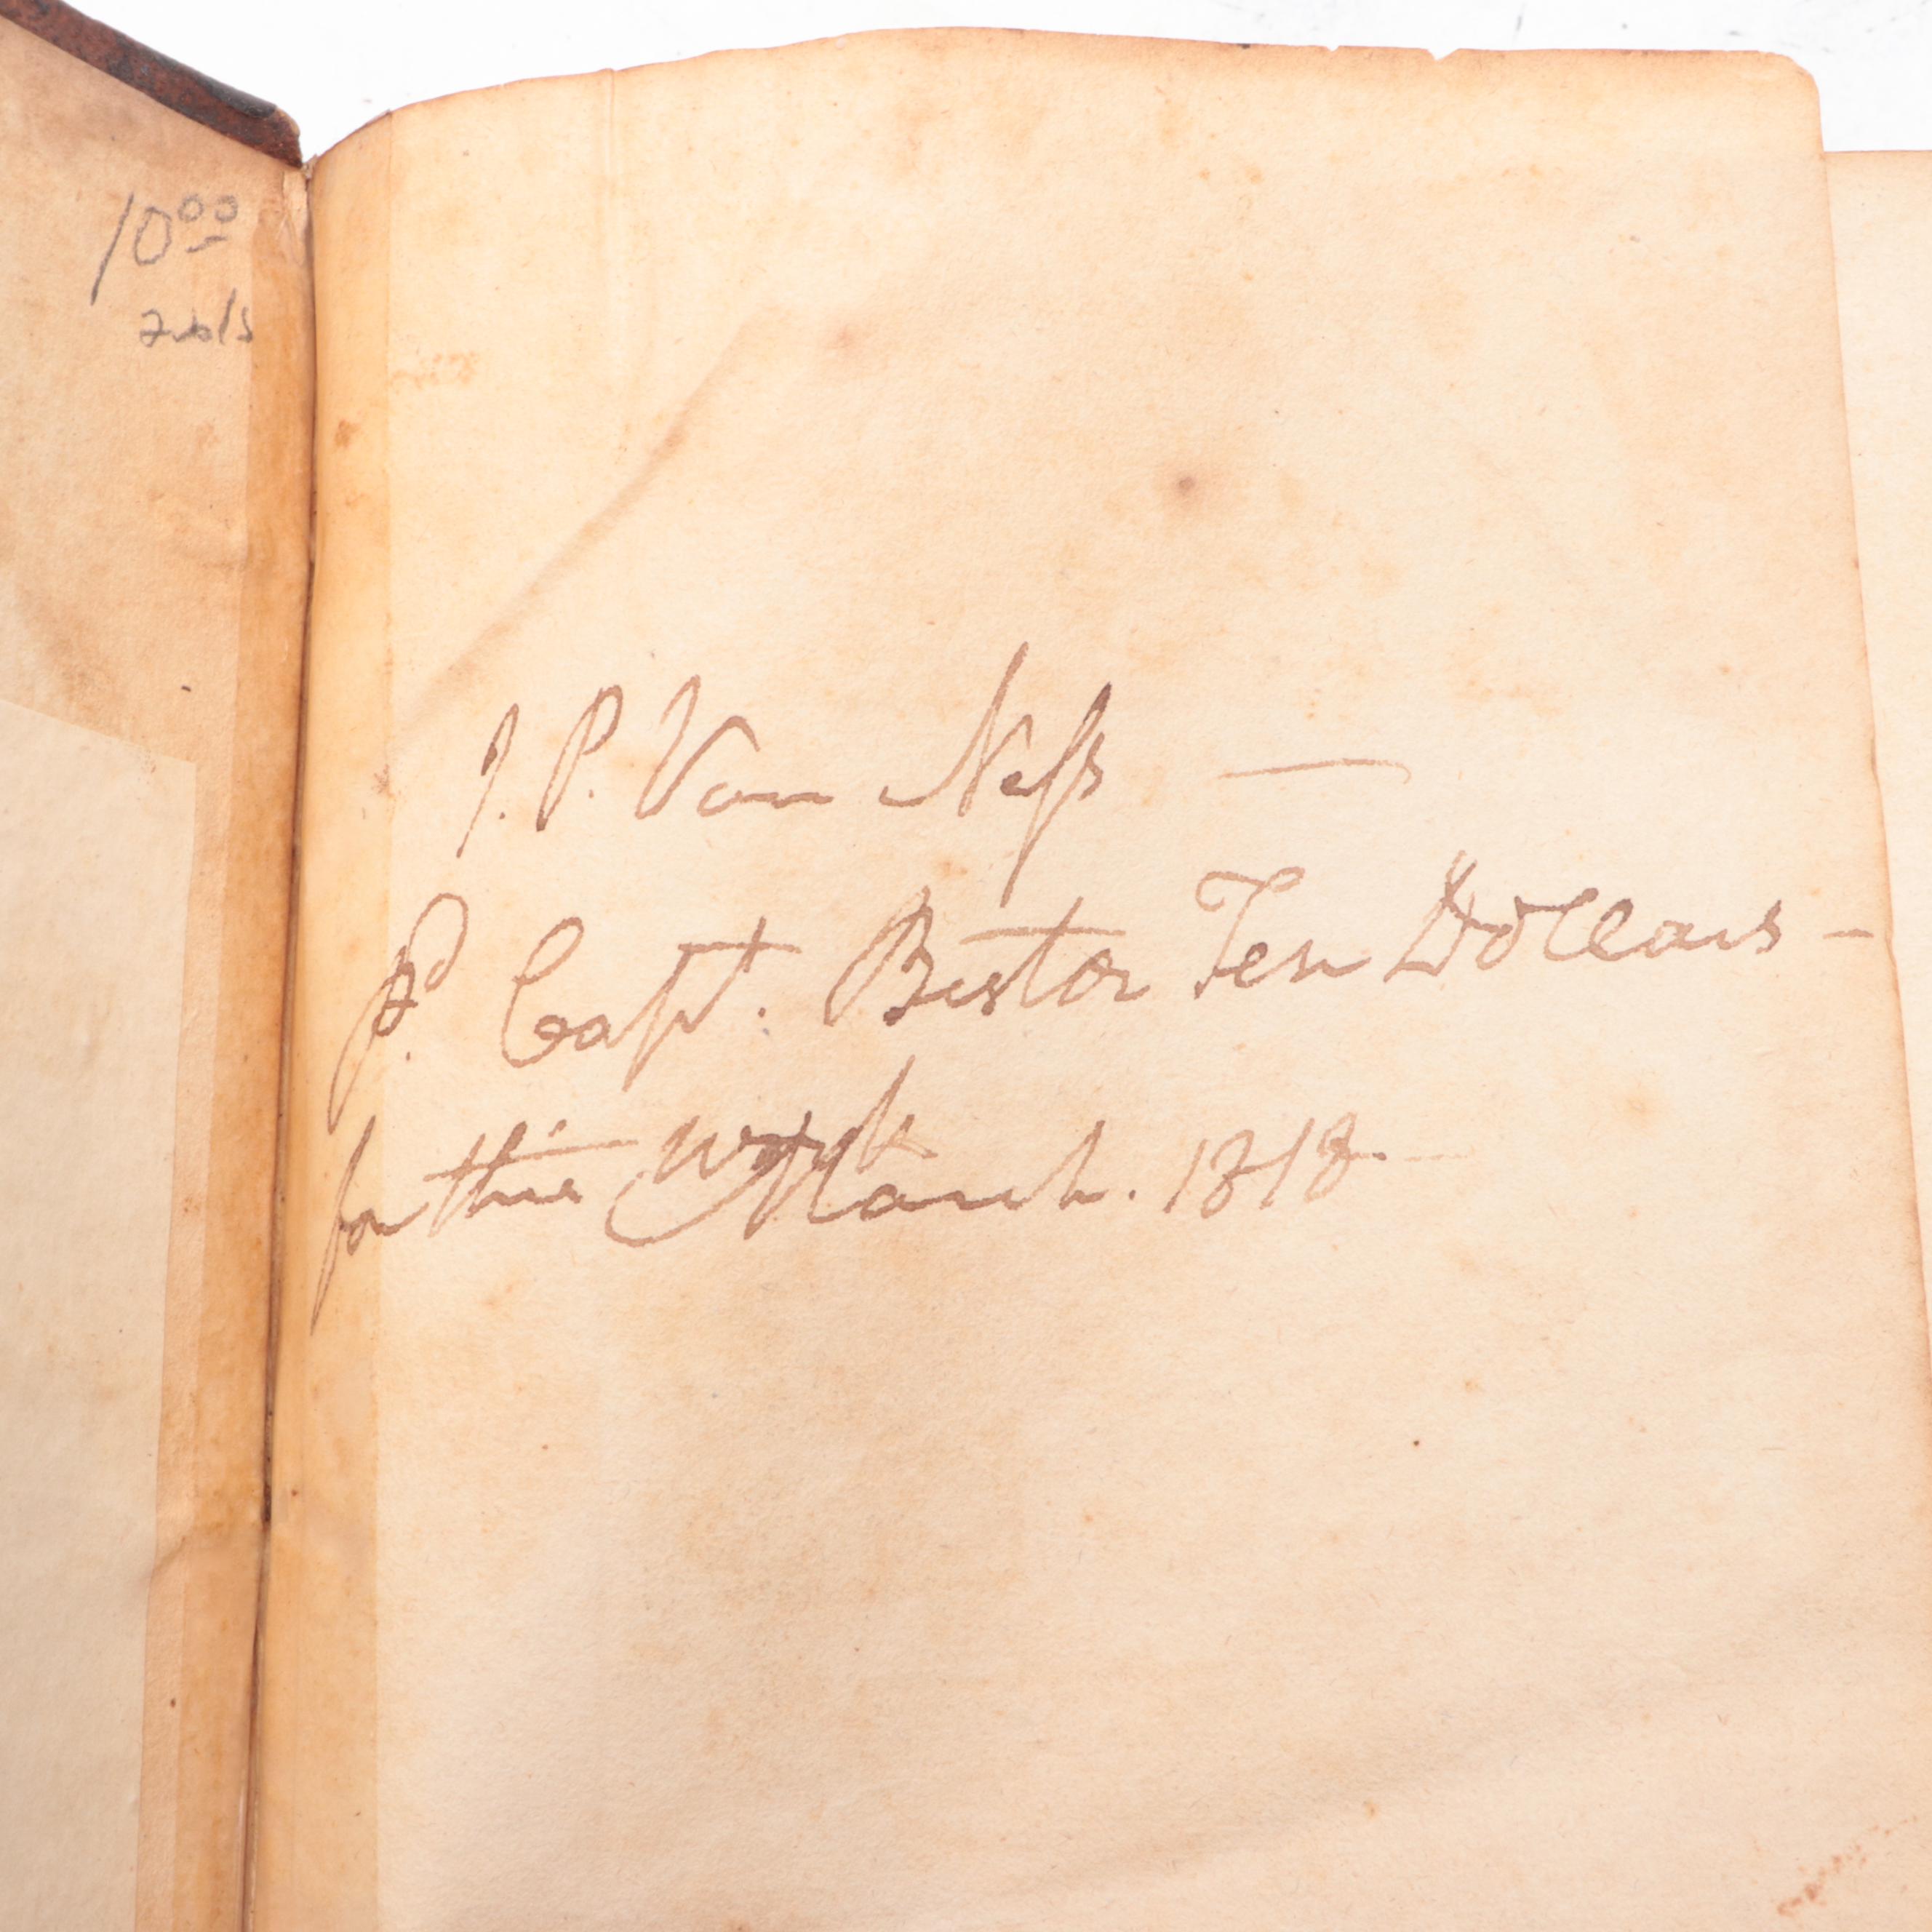 10.00
2 vols
J. P. Van Ness —
Pd. Capt. Bestor Ten Dollars —
for this work March. 1818. —